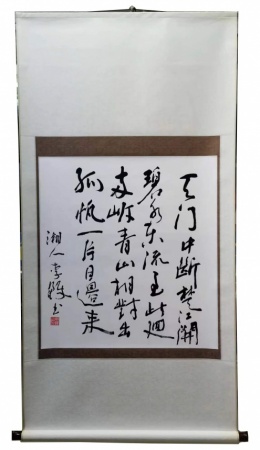 天门中断楚江開
碧水东流至此迴
两岸青山相對出
孤帆一片日邊来
湘人李书